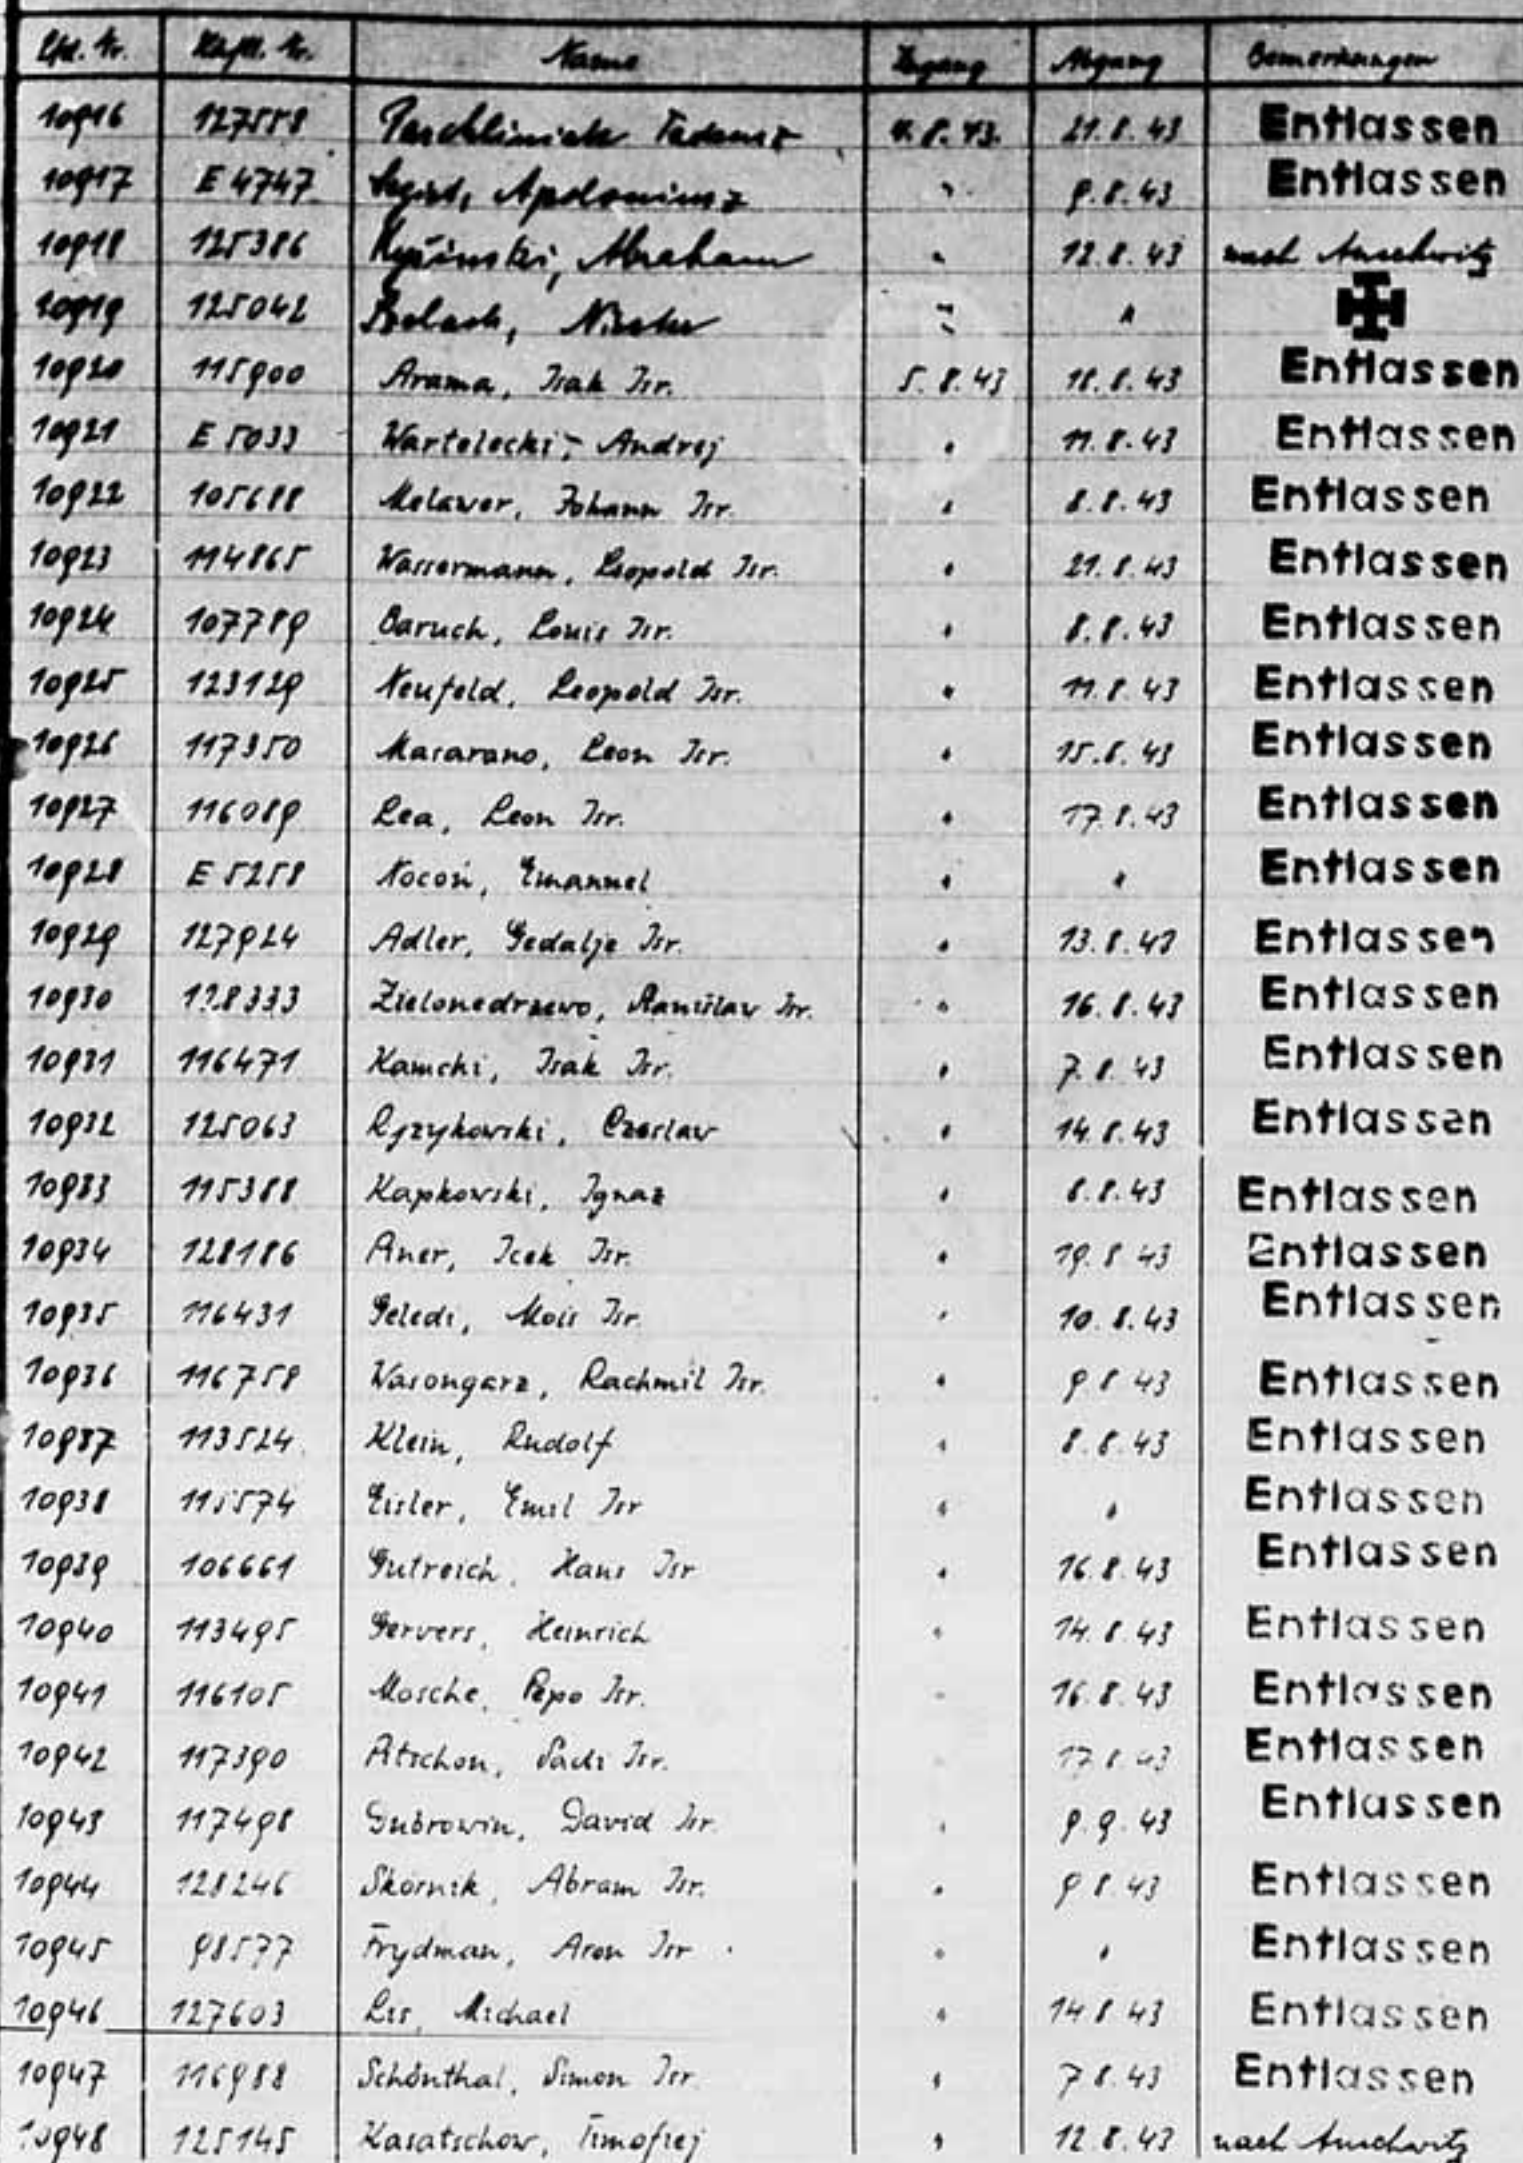 Lfd. Nr. Häftl. Nr. Name Zugang Abgang Bemerkungen
10916 127558 Tadeusz 4.8.43. 21.8.43 Entlassen
10917 E 4747 Apoloniusz " 9.8.43 Entlassen
10918 125386 Abraham " 12.8.43 nach Auschwitz
10919 125042 " "
10920 115900 Arama, Isak Isr. 5.8.43 18.8.43 Entlassen
10921 E 5033 Wartelecki, Andrej " 11.8.43 Entlassen
10922 105688 Melawer, Johann Isr. " 8.8.43 Entlassen
10923 114865 Wassermann, Leopold Isr. " 21.8.43 Entlassen
10924 107789 Baruch, Louis Isr. " 8.8.43 Entlassen
10925 123129 Neufeld, Leopold Isr. " 11.8.43 Entlassen
10926 117350 Masarano, Leon Isr. " 15.8.43 Entlassen
10927 116089 Lea, Leon Isr. " 17.8.43 Entlassen
10928 E 5258 Nocoń, Emanuel " " Entlassen
10929 127924 Adler, Gedalje Isr. " 13.8.43 Entlassen
10930 128333 Zielonedrzewo, Stanislaw Isr. " 16.8.43 Entlassen
10931 116471 Kamchi, Isak Isr. " 7.8.43 Entlassen
10932 125063 Czeslaw " 14.8.43 Entlassen
10933 115388 Kapkowski, Ignaz " 8.8.43 Entlassen
10934 128186 Aner, Icek Isr. " 19.8.43 Entlassen
10935 116431 Geledi, Mois Isr. " 10.8.43 Entlassen
10936 116758 Wasongarz, Rachmil Isr. " 9.8.43 Entlassen
10937 113524 Klein, Rudolf " 8.8.43 Entlassen
10938 115574 Eisler, Emil Isr " " Entlassen
10939 106661 Gutreich, Hans Isr " 16.8.43 Entlassen
10940 113495 Gervers, Heinrich " 14.8.43 Entlassen
10941 116105 Mosche, Pepo Isr. " 16.8.43 Entlassen
10942 117390 Atschon, Sadi Isr. " 17.8.43 Entlassen
10943 117498 Gubrowin, David Isr. " 9.9.43 Entlassen
10944 128246 Skornik, Abram Isr. " 9.8.43 Entlassen
10945 98577 Frydman, Aron Isr " " Entlassen
10946 127603 Lis, Michael " 14.8.43 Entlassen
10947 116988 Schönthal, Simon Isr. " 7.8.43 Entlassen
10948 125145 Kasatschow, Timofiej " 12.8.43 nach Auschwitz